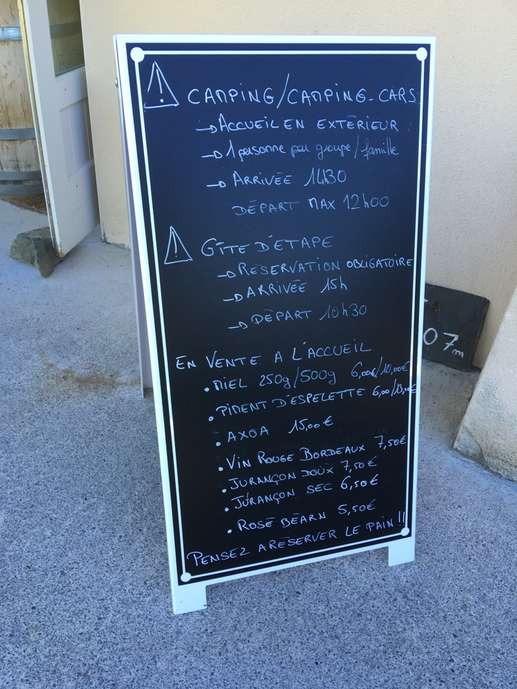 CAMPING/CAMPING-CARS
→ ACCUEIL EN EXTÉRIEUR
→ 1 personne par groupe/famille
→ ARRIVÉE 14H30
DÉPART MAX 12H00
GÎTE D'ÉTAPE
→ RESERVATION OBLIGATOIRE
→ ARRIVÉE 15h
→ DÉPART 10H30
EN VENTE A L'ACCUEIL
• MIEL 250g/500g 6,00€/10,00€
• PIMENT D'ESPELETTE 6,00/
• AXOA 15,00€
• VIN ROUGE BORDEAUX 7,50€
• JURANÇON DOUX 7,50€
• JURANÇON SEC 6,50€
• ROSÉ BÉARN 5,50€
PENSEZ A RESERVER LE PAIN !!
07m